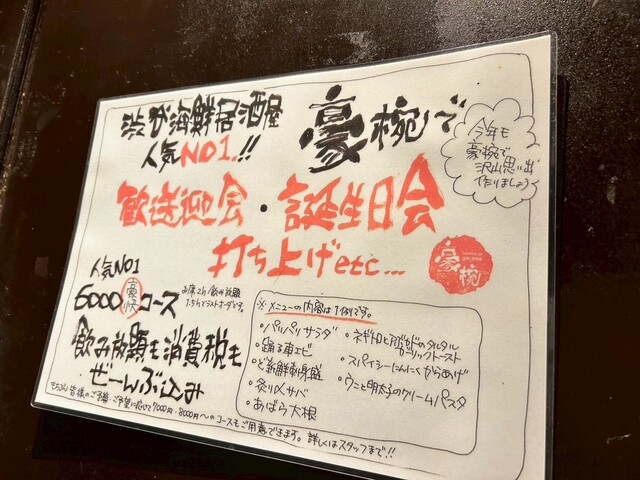 渋谷海鮮居酒屋
人気NO1.!!
豪椀で
今年も
豪椀で
沢山思い出
作りましょう
歓送迎会・誕生日会
打ち上げetc...
豪椀
人気NO1
6000 豪快 コース
お席2h/飲み放題
1.5hラストオーダーです。
飲み放題も消費税も
ぜーんぶ込み
※メニューの内容は1例です。
・パリパリサラダ
・踊る車エビ
・ど新鮮刺身盛
・炙り〆サバ
・あばら大根
・ネギトロとアボカドのタルタル
ガーリックトースト
・スパイシーにんにくからあげ
・ウニと明太子のクリームパスタ
もちろん皆様のご予算・ご希望に応じて7000円・8000円〜のコースもご用意できます。詳しくはスタッフまで!!